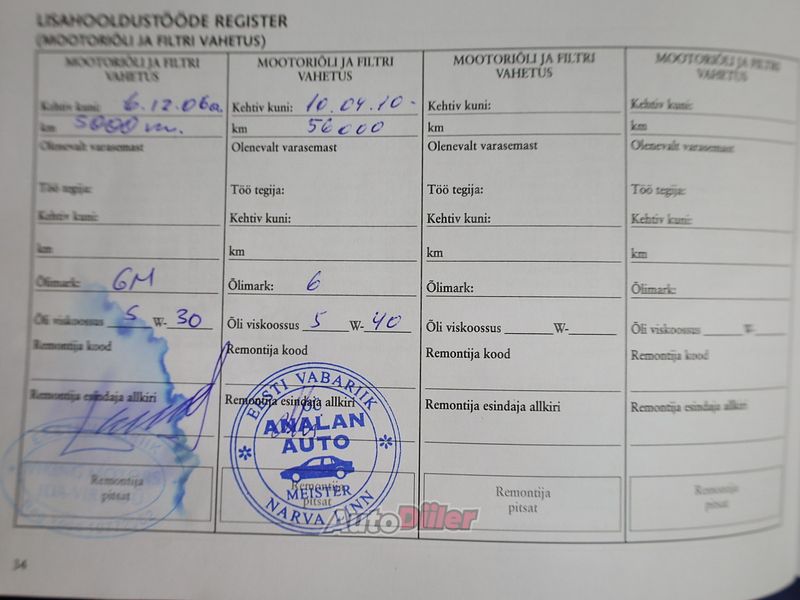 LISAHOOLDUSTÖÖDE REGISTER
(MOOTORIÕLI JA FILTRI VAHETUS)
MOOTORIÕLI JA FILTRI
VAHETUS
Kehtiv kuni: 6.12.06a.
km 5000 m.
Olenevalt varasemast
Töö tegija:
Kehtiv kuni:
km
Õlimark: GM
Õli viskoossus 5 W- 30
Remontija kood
Remontija esindaja allkiri
Remontija
pitsat
MOOTORIÕLI JA FILTRI
VAHETUS
Kehtiv kuni: 10.04.10-
km 56000
Olenevalt varasemast
Töö tegija:
Kehtiv kuni:
km
Õlimark: 6
Õli viskoossus 5 W- 40
Remontija kood
Remontija esindaja allkiri
EESTI VABARIIK
ANALAN
AUTO
MEISTER
NARVA LINN
Remontija
pitsat
MOOTORIÕLI JA FILTRI
VAHETUS
Kehtiv kuni:
km
Olenevalt varasemast
Töö tegija:
Kehtiv kuni:
km
Õlimark:
Õli viskoossus W-
Remontija kood
Remontija esindaja allkiri
Remontija
pitsat
MOOTORIÕLI JA FILTRI
VAHETUS
Kehtiv kuni:
km
Olenevalt varasemast
Töö tegija:
Kehtiv kuni:
km
Õlimark:
Õli viskoossus W-
Remontija kood
Remontija esindaja allkiri
Remontija
pitsat
AutoDiiler
34